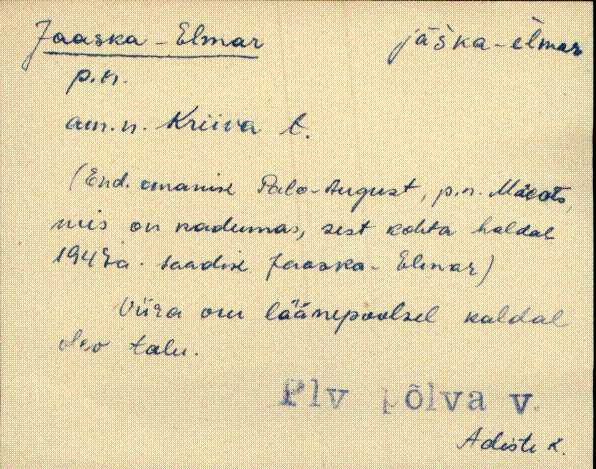 Jaaska-Elmar jäška-elmar
p.n.
am.n. Kriiva t.
(End. omanik Palo-August, p.n.
mis on kadumas, sest kohta haldab
194 a. saadik Jaaska-Elmar)
Viira oru läänepoolsel kaldal
olev talu.
Plv põlva v.
Adiste k.